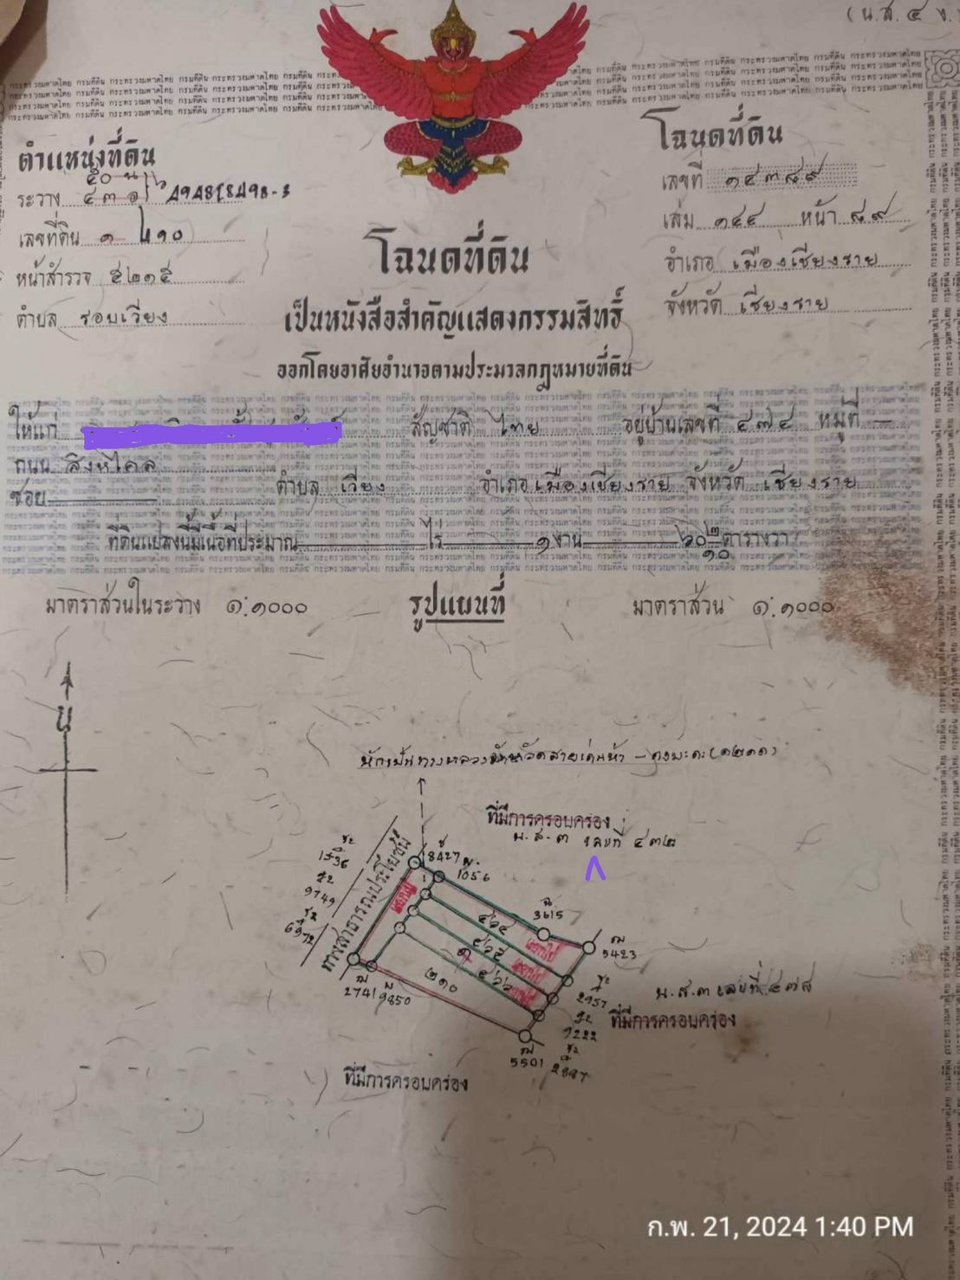 (น.ส. ๔ จ.
ตำแหน่งที่ดิน
ระวาง
เลขที่ดิน ๑ ๒๑๐
หน้าสำรวจ ๕๒๑๕
ตำบล รอบเวียง
โฉนดที่ดิน
เลขที่ ๑๔๓๘๙
เล่ม ๑๔๔ หน้า ๘๙
อำเภอ เมืองเชียงราย
จังหวัด เชียงราย
โฉนดที่ดิน
เป็นหนังสือสำคัญแสดงกรรมสิทธิ์
ออกโดยอาศัยอำนาจตามประมวลกฎหมายที่ดิน
ให้แก่ สัญชาติ ไทย อยู่บ้านเลขที่ ๔๗๔ หมู่ที่ —
ถนน สิงหไคล
ซอย ตำบล เวียง อำเภอ เมืองเชียงราย จังหวัด เชียงราย
ที่ดินแปลงนี้มีเนื้อที่ประมาณ ไร่ ๑ งาน ๖๐ ๒/๑๐ ตารางวา
มาตราส่วนในระวาง ๑:๑๐๐๐ รูปแผนที่ มาตราส่วน ๑:๑๐๐๐
น
ที่มีการครอบครอง
น.ส.๓ เลขที่ ๔๓๒
8427
1056
1536
9749
6972
ทางสาธารณประโยชน์
3615
5423
๕๖๔
๕๖๕
๕๖๖
๑
๒๑๐
2741
9850
2957
น.ส.๓ เลขที่ ๔๗๘
ที่มีการครอบครอง
5501
ที่มีการครอบครอง
ก.พ. 21, 2024 1:40 PM